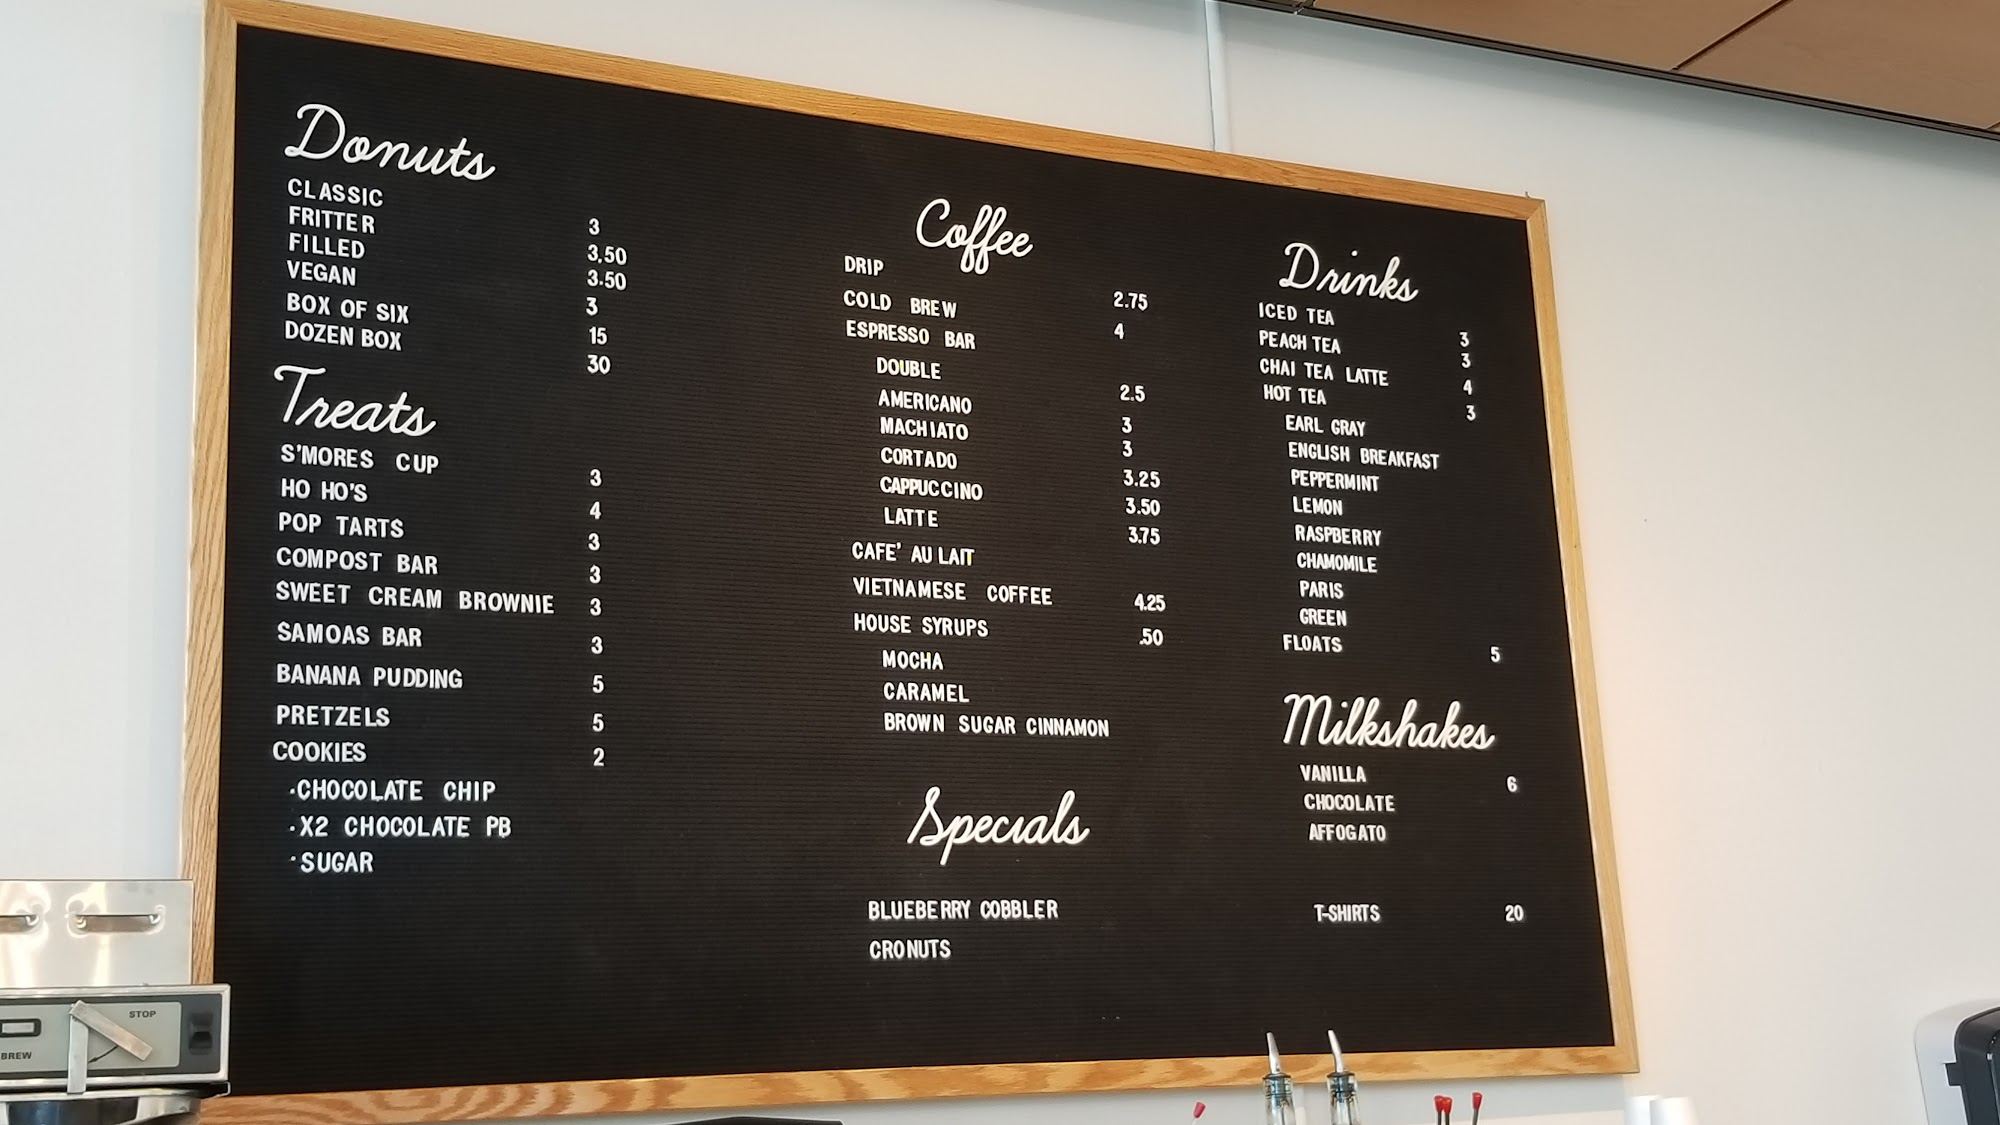 Donuts
CLASSIC 3
FRITTER 3.50
FILLED 3.50
VEGAN 3
BOX OF SIX 15
DOZEN BOX 30
Treats
S'MORES CUP 3
HO HO'S 4
POP TARTS 3
COMPOST BAR 3
SWEET CREAM BROWNIE 3
SAMOAS BAR 3
BANANA PUDDING 5
PRETZELS 5
COOKIES 2
·CHOCOLATE CHIP
·X2 CHOCOLATE PB
·SUGAR
Coffee
DRIP 2.75
COLD BREW 4
ESPRESSO BAR
DOUBLE 2.5
AMERICANO 3
MACHIATO 3
CORTADO 3.25
CAPPUCCINO 3.50
LATTE 3.75
CAFE' AU LAIT
VIETNAMESE COFFEE 4.25
HOUSE SYRUPS .50
MOCHA
CARAMEL
BROWN SUGAR CINNAMON
Specials
BLUEBERRY COBBLER
CRONUTS
Drinks
ICED TEA 3
PEACH TEA 3
CHAI TEA LATTE 4
HOT TEA 3
EARL GRAY
ENGLISH BREAKFAST
PEPPERMINT
LEMON
RASPBERRY
CHAMOMILE
PARIS
GREEN
FLOATS 5
Milkshakes
VANILLA 6
CHOCOLATE
AFFOGATO
T-SHIRTS 20
STOP
BREW